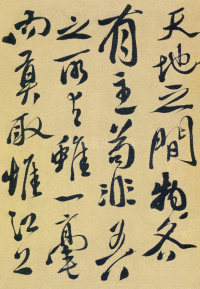 天地之間物各
有主苟非吾
之所有雖一毫
而莫取惟江上